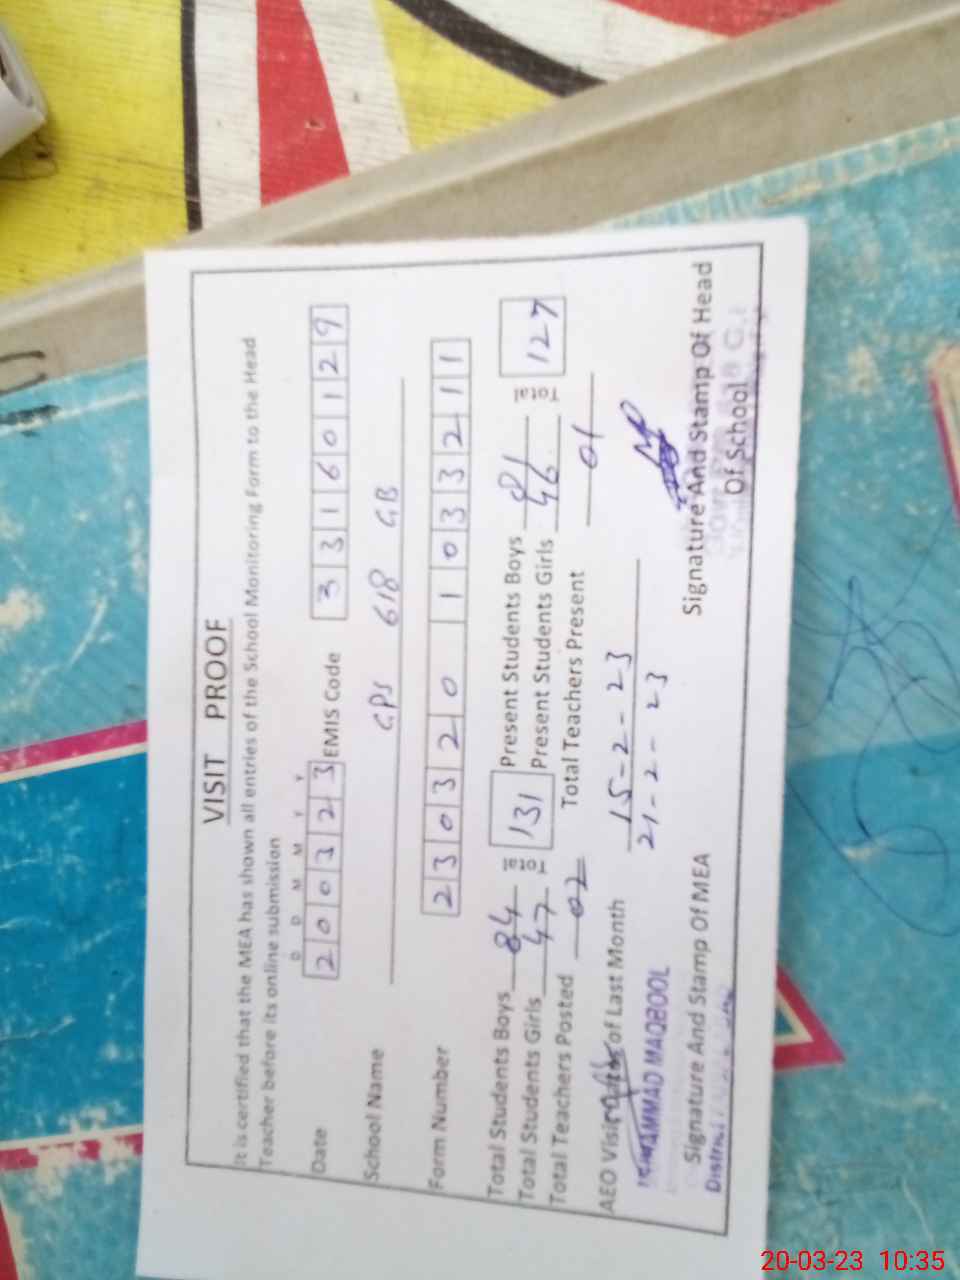 VISIT PROOF
It is certified that the MEA has shown all entries of the School Monitoring Form to the Head
Teacher before its online submission
D D M M Y Y
Date 2 0 0 3 2 3 EMIS Code 3 3 1 6 0 1 2 9
School Name GPS 618 GB
Form Number 2 3 0 3 2 0 1 0 3 3 2 1 1
Total Students Boys 84 Total 131 Present Students Boys 81 Total 127
Total Students Girls 47 Present Students Girls 46
Total Teachers Posted 02 Total Teachers Present 01
AEO Visit of Last Month 15-2-23
21-2-23
MUHAMMAD MAQBOOL
Signature And Stamp Of MEA Signature And Stamp Of Head
Of School
20-03-23 10:35